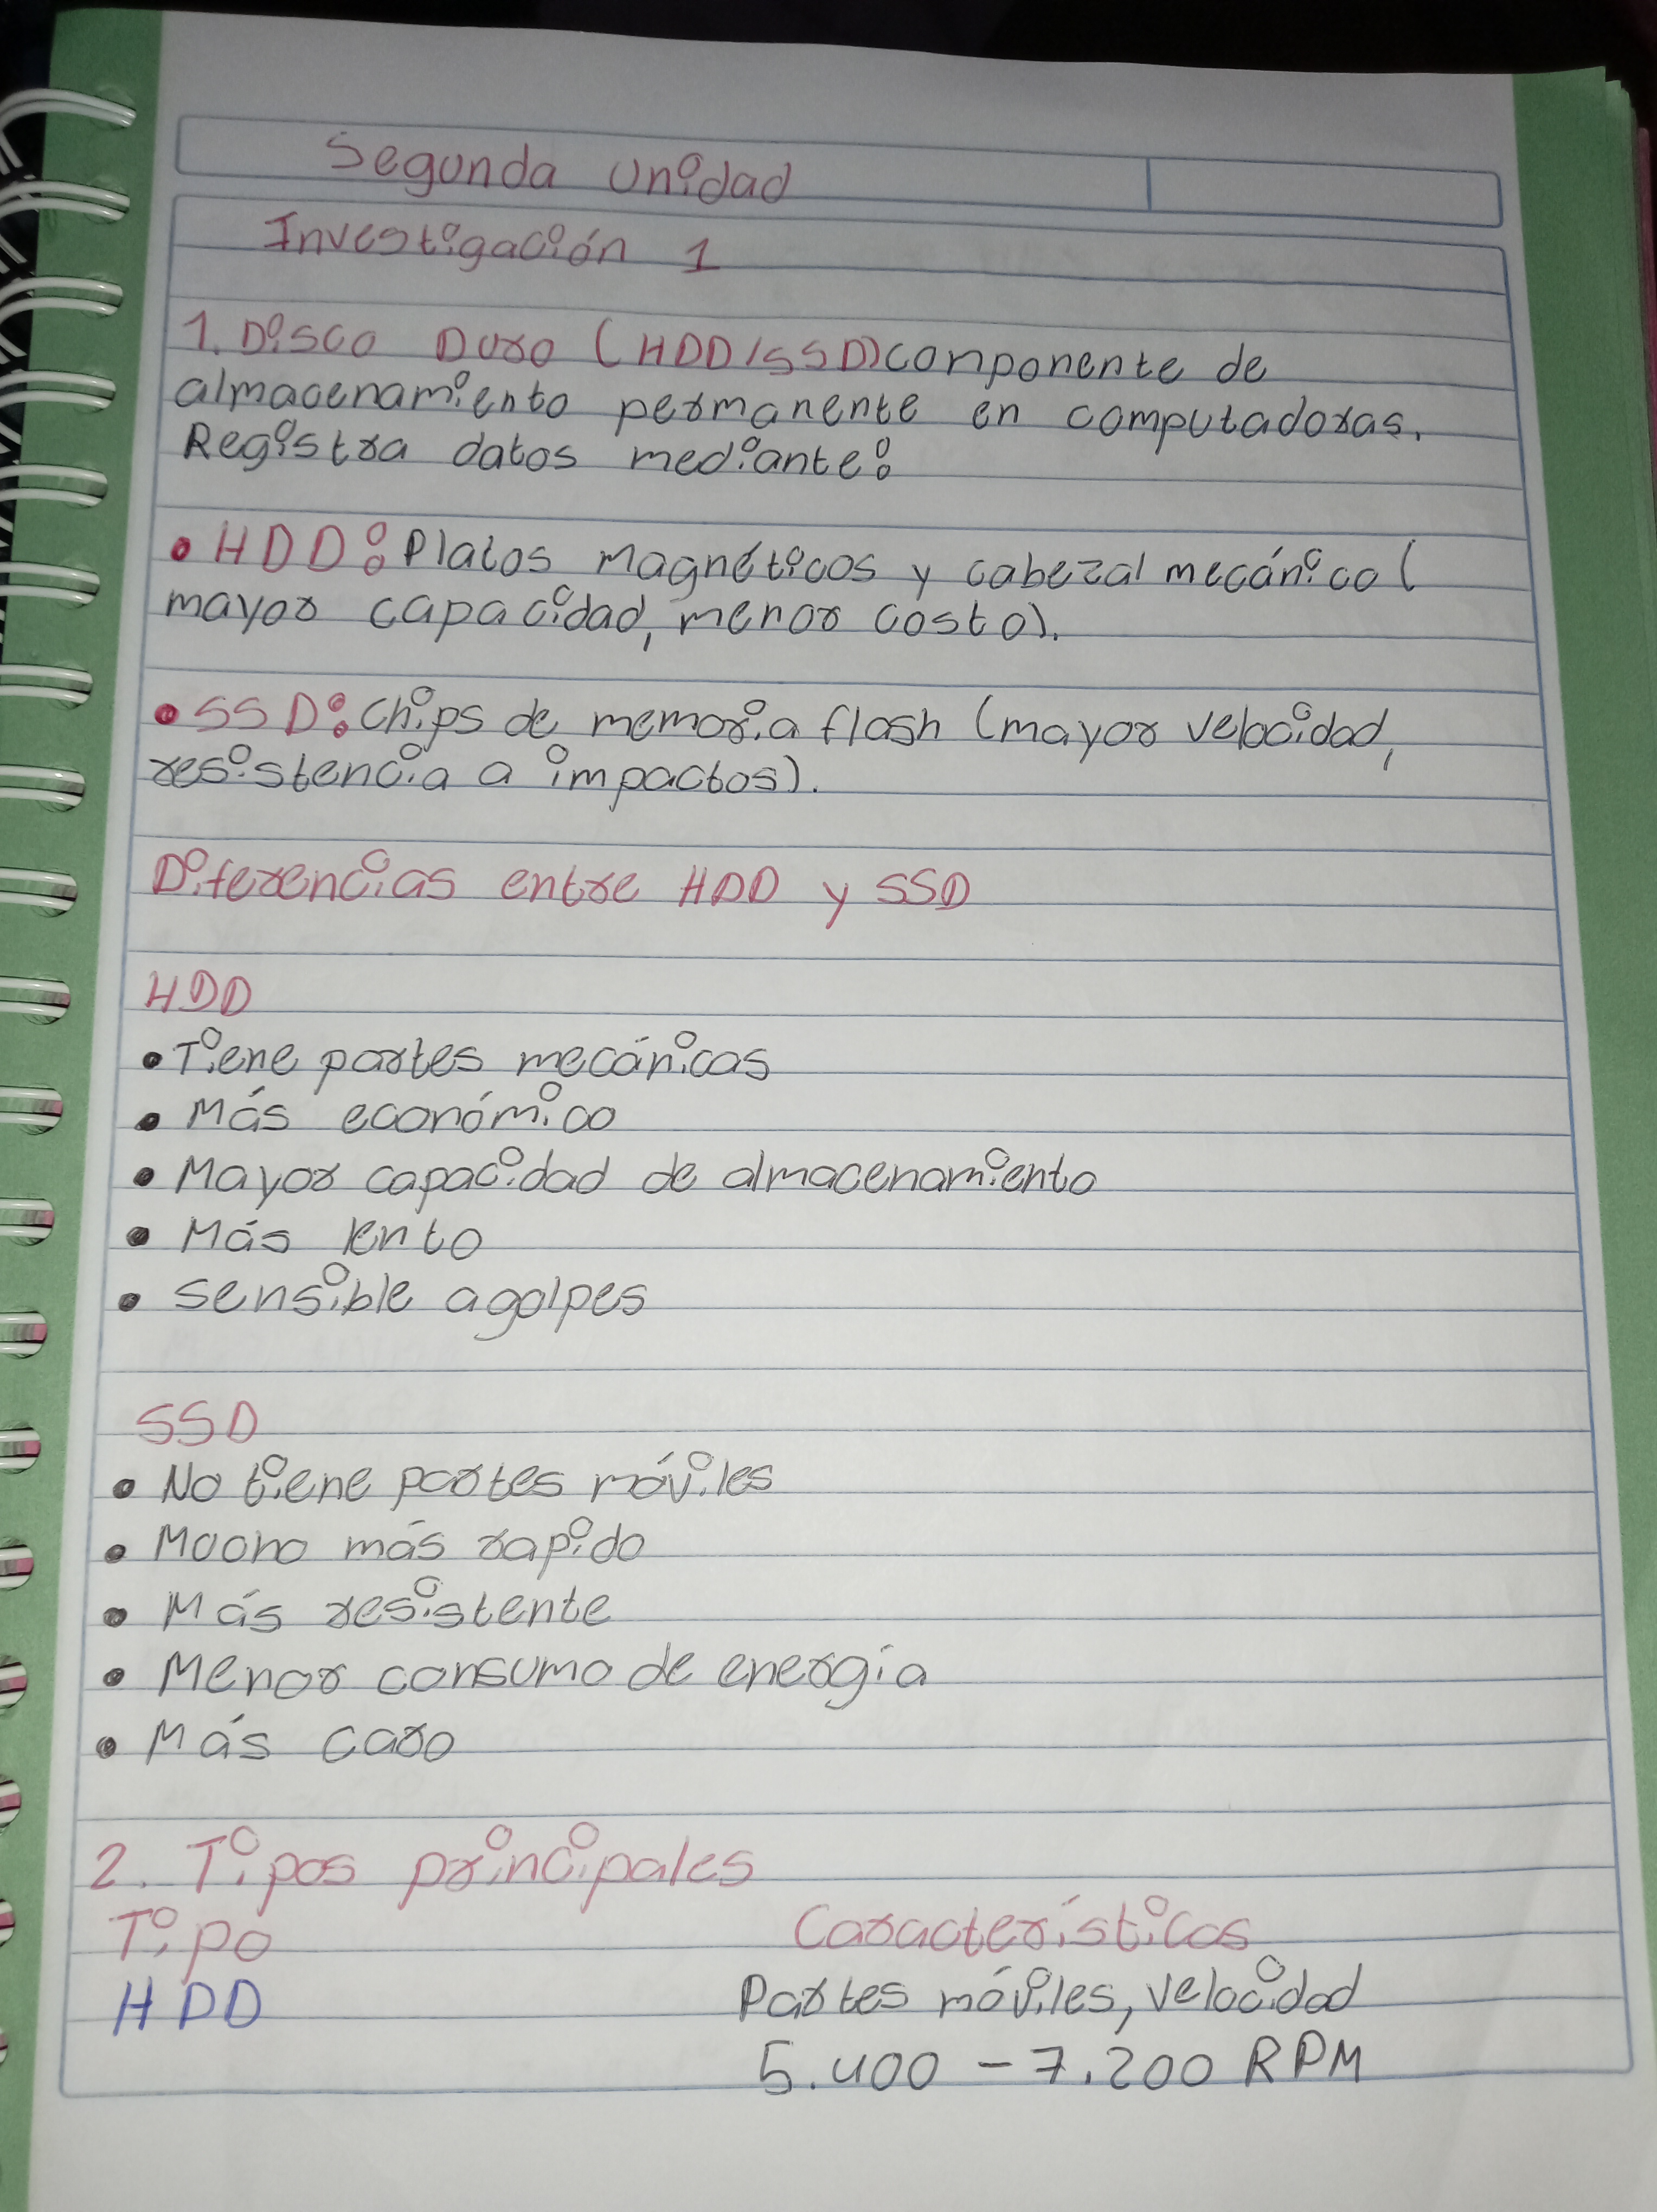 Segunda Unidad
Investigación 1
1. Disco Duro (HDD/SSD) componente de
almacenamiento permanente en computadoras.
Registra datos mediante:
• HDD: Platos Magnéticos y cabezal mecánico (
mayor capacidad, menor costo).
• SSD: Chips de memoria flash (mayor velocidad,
resistencia a impactos).
Diferencias entre HDD y SSD
HDD
• Tiene partes mecánicas
• Más económico
• Mayor capacidad de almacenamiento
• Más lento
• sensible a golpes
SSD
• No tiene partes móviles
• Mucho más rapido
• Más resistente
• Menor consumo de energía
• Más caro
2. Tipos principales
Tipo Características
HDD Partes móviles, velocidad
5.400 - 7.200 RPM